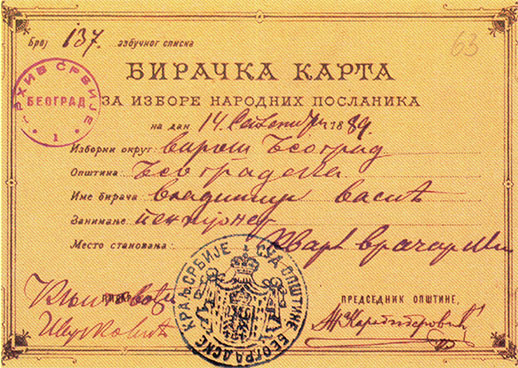 Број 137. азбучног списка
63
БИРАЧКА КАРТА
ЗА ИЗБОРЕ НАРОДНИХ ПОСЛАНИКА
на дан 14. Септембра 1889.
Изборни округ: варош Београд
Општина: Београдска
Име бирача: Владимир Васић
Занимање: пензионер
Место становања: Кварт врачарски
ПРЕДСЕДНИК ОПШТИНЕ,
АРХИВ СРБИЈЕ
БЕОГРАД
1
КРАЉ. СРБИЈЕ СУД ОПШТИНЕ БЕОГРАДСКЕ